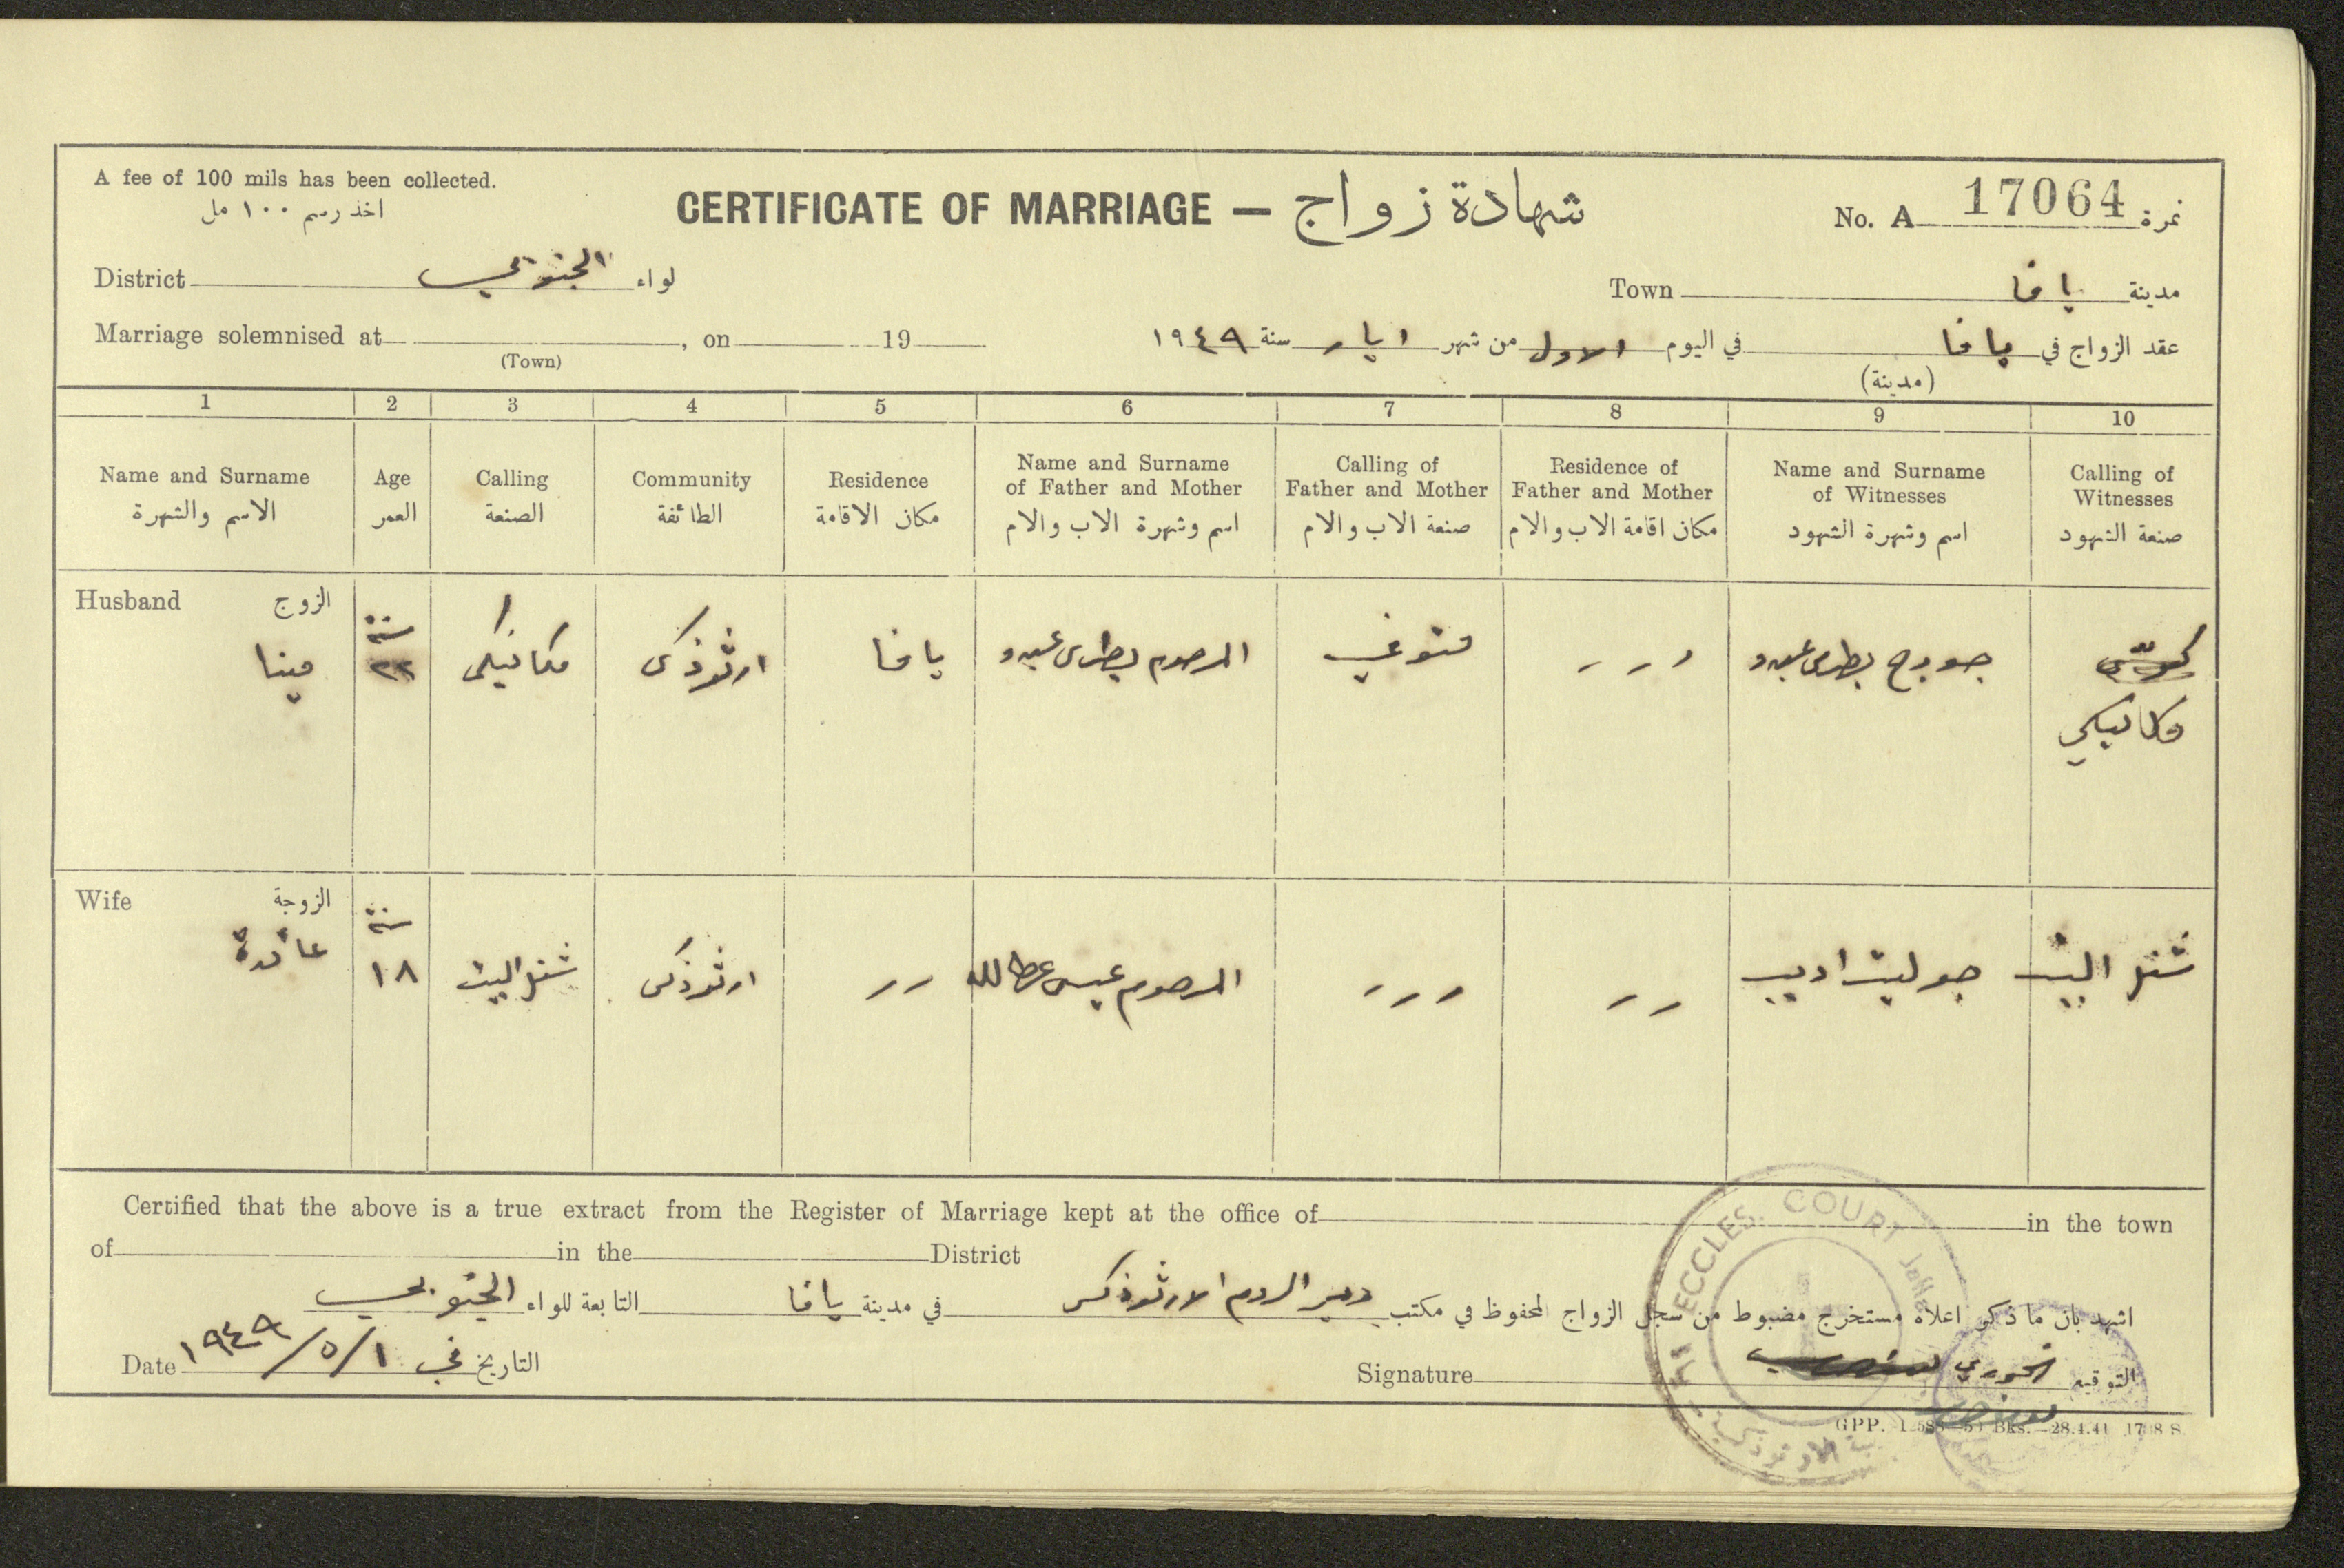 A fee of 100 mils has been collected.
اخذ رسم ١٠٠ مل
CERTIFICATE OF MARRIAGE — شهادة زواج
No. A 17064 نمرة
District الجنوبي لواء
Town يافا مدينة
Marriage solemnised at , on 19
(Town)
عقد الزواج في يافا في اليوم الاول من شهر ايار سنة ١٩٤٩
(مدينة)
1 2 3 4 5 6 7 8 9 10
Name and Surname
الاسم والشهرة
Age
العمر
Calling
الصنعة
Community
الطائفة
Residence
مكان الاقامة
Name and Surname
of Father and Mother
اسم وشهرة الاب والام
Calling of
Father and Mother
صنعة الاب والام
Residence of
Father and Mother
مكان اقامة الاب والام
Name and Surname
of Witnesses
اسم وشهرة الشهود
Calling of
Witnesses
صنعة الشهود
Husband الزوج
مينا
سنة
٢٢
مكانيكي
ارثوذكس
يافا
المرحوم بطرس عبدو
متوفي
جورج بطرس عبدو
مكانيكي
Wife الزوجة
عائدة
سنة
١٨
شغل البيت
ارثوذكس
المرحوم عيسى عطالله
جوليت اديب
شغل البيت
Certified that the above is a true extract from the Register of Marriage kept at the office of in the town
of in the District
اشهد بان ما ذكر اعلاه مستخرج مضبوط من سجل الزواج المحفوظ في مكتب دير الروم الارثوذكس في مدينة يافا التابعة للواء الجنوبي
Date ١٩٤٩/٥/١ في التاريخ
Signature الخوري التوقيع
ECCLES. COURT Jaffa
GPP. 28.4.41